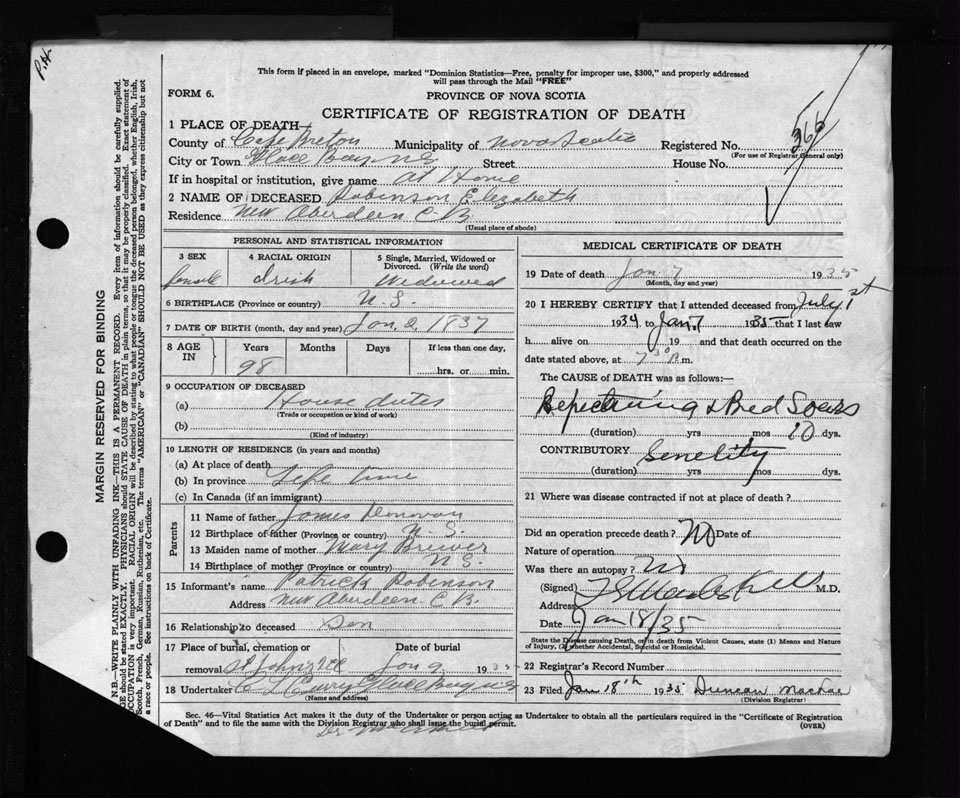 P.H.
This form if placed in an envelope, marked "Dominion Statistics—Free, penalty for improper use, $300," and properly addressed
will pass through the Mail "FREE"
FORM 6.
PROVINCE OF NOVA SCOTIA
CERTIFICATE OF REGISTRATION OF DEATH
1 PLACE OF DEATH—
County of Cape Breton Municipality of Nova Scotia Registered No. 366
(For use of Registrar General only)
City or Town Glace Bay N S Street House No.
If in hospital or institution, give name At Home
2 NAME OF DECEASED Robinson Elizabeth
Residence New Aberdeen C B.
(Usual place of abode)
PERSONAL AND STATISTICAL INFORMATION
3 SEX 4 RACIAL ORIGIN 5 Single, Married, Widowed or
Divorced. (Write the word)
female Irish Widowed
6 BIRTHPLACE (Province or country) N. S.
7 DATE OF BIRTH (month, day and year) Jan 2 1837
8 AGE IN Years Months Days If less than one day,
98 hrs. or min.
9 OCCUPATION OF DECEASED
(a) House duties
(Trade or occupation or kind of work)
(b)
(Kind of industry)
10 LENGTH OF RESIDENCE (in years and months)
(a) At place of death
(b) In province Life time
(c) In Canada (if an immigrant)
Parents
11 Name of father James Donovan
12 Birthplace of father (Province or country) N. S.
13 Maiden name of mother Mary Brewer
14 Birthplace of mother (Province or country) N S.
15 Informant's name Patrick Robinson
Address New Aberdeen C B.
16 Relationship to deceased Son
17 Place of burial, cremation or Date of burial
removal Jan 9 1935
18 Undertaker Glace Bay N S
(Name and address)
MEDICAL CERTIFICATE OF DEATH
19 Date of death Jan 7 1935
(Month, day and year)
20 I HEREBY CERTIFY that I attended deceased from July 1st
1934 to Jan 7 1935 that I last saw
h alive on 19 and that death occurred on the
date stated above, at 7 30 m.
The CAUSE of DEATH was as follows:—
& Bed Soars
(duration) yrs mos 10 dys.
CONTRIBUTORY Senelity
(duration) yrs mos dys.
21 Where was disease contracted if not at place of death?
Did an operation precede death? No Date of
Nature of operation
Was there an autopsy? No
(Signed) M.D.
Address
Date Jan 18/35
State the Disease causing Death, or in death from Violent Causes, state (1) Means and Nature
of Injury, (2) whether Accidental, Suicidal or Homicidal.
22 Registrar's Record Number
23 Filed Jan 18th 1935 Duncan
(Division Registrar)
Sec. 46—Vital Statistics Act makes it the duty of the Undertaker or person acting as Undertaker to obtain all the particulars required in the "Certificate of Registration
of Death" and to file the same with the Division Registrar who shall issue the burial permit. (OVER)
Dr
MARGIN RESERVED FOR BINDING
N.B.—WRITE PLAINLY WITH UNFADING INK—THIS IS A PERMANENT RECORD. Every item of information should be carefully supplied.
AGE should be stated EXACTLY. PHYSICIANS should STATE CAUSE OF DEATH in plain terms, so that it may be properly classified. Exact statement of
OCCUPATION is very important. RACIAL ORIGIN will be described by stating to what people or tongue the deceased person belonged, whether English, Irish,
Scotch, French, German, Russian, Ruthenian, etc. The terms "AMERICAN" or "CANADIAN" SHOULD NOT BE USED as they express citizenship but not
a race or people. See instructions on back of Certificate.